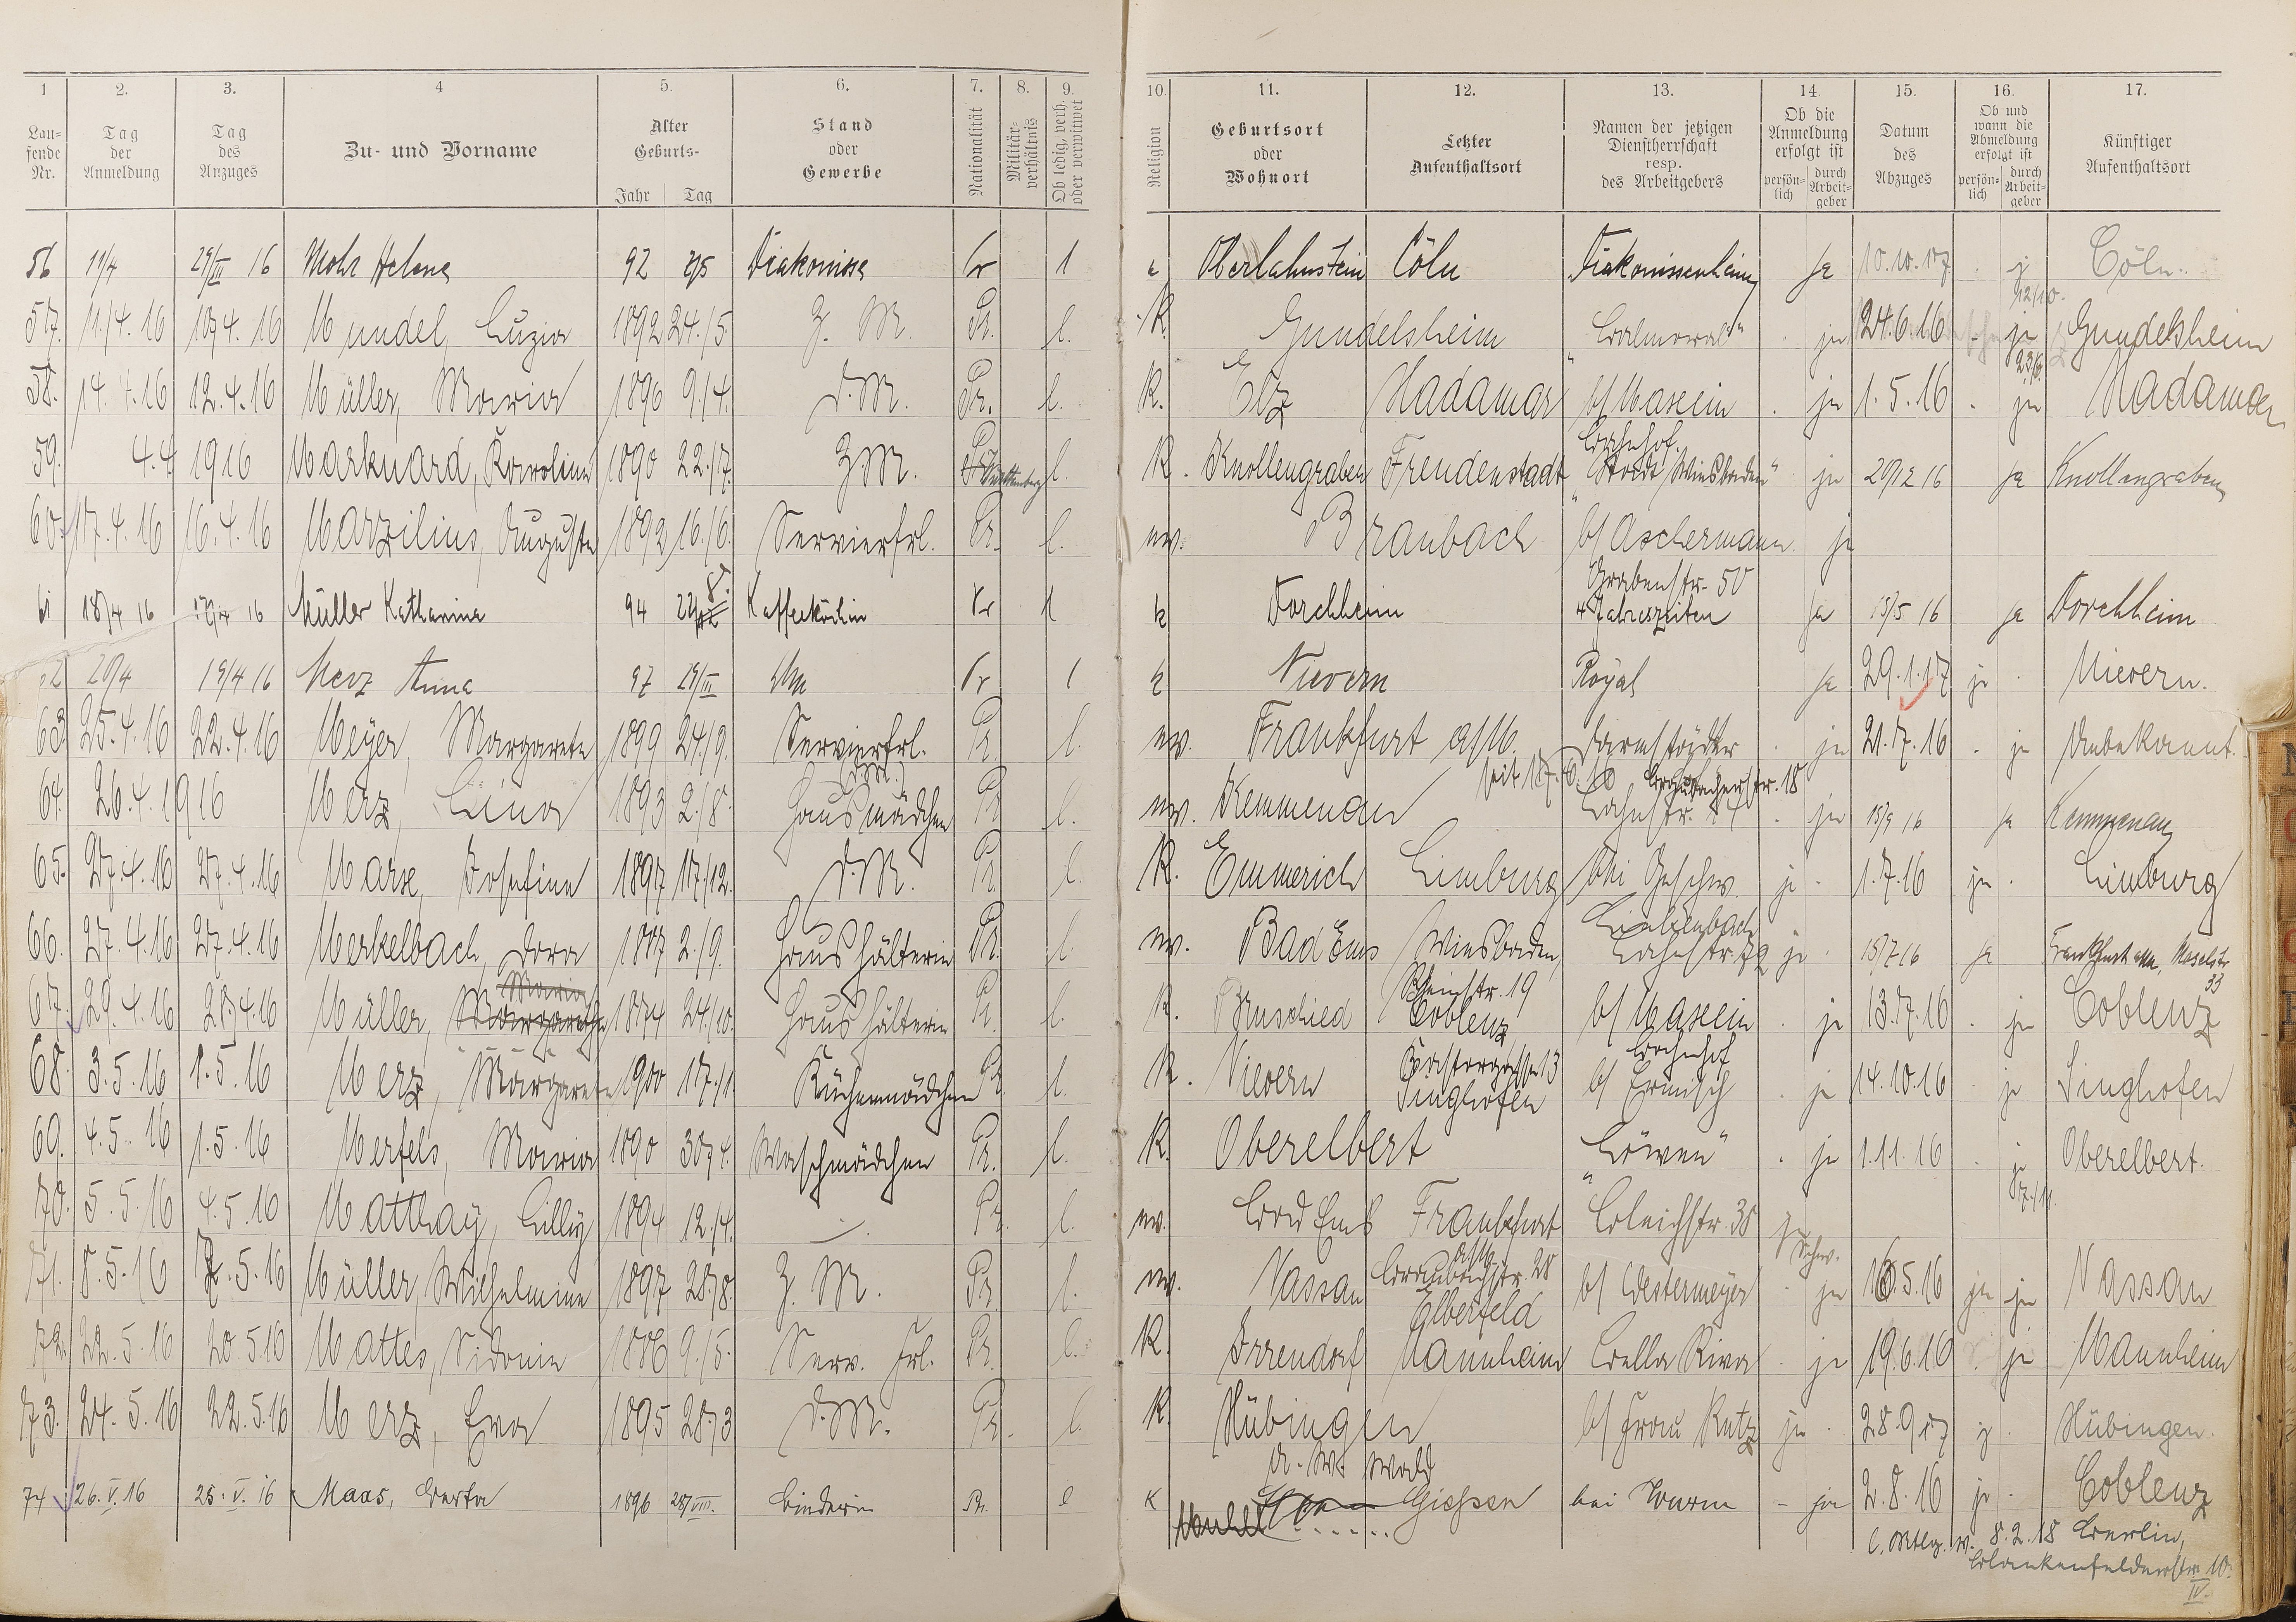 1 2. 3. 4 5. 6. 7. 8. 9. 10. 11. 12. 13. 14. 15. 16. 17.
Laufende Nr. Tag der Anmeldung Tag des Anzuges Zu- und Vorname Alter Geburts- Jahr Tag Stand oder Gewerbe Nationalität Militärverhältnis Ob ledig, verh. oder verwitwet Religion Geburtsort oder Wohnort Letzter Aufenthaltsort Namen der jetzigen Dienstherrschaft resp. des Arbeitgebers Ob die Anmeldung erfolgt ist persönlich durch Arbeitgeber Datum des Abzuges Ob und wann die Abmeldung erfolgt ist persönlich durch Arbeitgeber Künftiger Aufenthaltsort
56 11/4 29/III 16 Mohr Helene 92 Diakonisse Pr l Oberlahnstein Cöln Diakonissenheim ja 10.10.17 j Cöln.
12/10.
57. 11./4.16 10/4.16 Mundel, Luzia 1892 24./5. Z. M. Pr. l. K. Gundelsheim "Balmoral" ja 24.6.16 ja Gundelsheim
23/6.
58. 14.4.16 12.4.16 Müller, Maria 1896 9./4. D.M. Pr. l. K. Elz Hadamar b/ Masein ja 1.5.16 ja Hadamar
Bahnhof.
59. 4.4.1916 Marknard, Karoline 1890 22./7. Z.M. Württemberg l. K. Knollengraben Freudenstadt "Stadt Wiesbaden" ja 20/12 16 ja Knollengraben
60. 17.4.16 16.4.16 Marzilius, Auguste 1893 16./6. Servierfrl. Pr. l. ev. Braubach b/ Aschermann ja
Grabenstr. 50
61 18/4 16 17/4 16 Müller Katharina 94 Kaffeeköchin Pr l k Forchheim 4 Jahreszeiten ja 15/5 16 ja Forchheim
62 20/4 19/4 16 Merz Anna 97 29/III Pr l k Nievern Royal ja 29.1.17 ja Nievern.
63. 25.4.16 22.4.16 Meyer, Margarete 1899 24./9. Servierfrl. Pr. l. ev. Frankfurt a/M. Darmstädter ja 21.7.16 ja Unbekannt.
(D.M.) seit Braubacherstr. 18
64. 26.4.1916 Merz, Lina 1893 2./8. Hausmädchen Pr l. ev. Kemmenau Lahnstr. ja 15/9 16 ja Kemmenau
65. 27.4.16 27.4.16 Marse, Josefine 1897 17./12. D.M. Pr. l. K. Emmerich Limburg bei Geschw. ja 1.7.16 ja Limburg
Linkenbach
66. 27.4.16 27.4.16 Merkelbach, Dora 2./9. Haushälterin Pr. l. ev. Bad Ems Wiesbaden Lahnstr. 72 ja 15/7 16 ja Frankfurt a/M, Moselstr 33
Maria Rheinstr. 19
67. 29.4.16 28.4.16 Müller, Margarethe 1874 24./10. Haushälterin Pr. l. K. Bruschied Coblenz b/ Masein ja 13.7.16 ja Coblenz
Kastorgasse 13 Bahnhof
68. 3.5.16 1.5.16 Merz, Margarete 1900 17./1. Küchenmädchen Pr. l. K. Nievern Singhofen b/ Ermisch ja 14.10.16 ja Singhofen
69. 4.5.16 1.5.16 Merfels, Maria 1890 30/4. Waschmädchen Pr. l. K. Oberelbert "Löwen" ja 1.11.16 ja Oberelbert.
17./11.
70. 5.5.16 4.5.16 Matthay, Cilly 1894 12./4. Pr. l. ev. Bad Ems Frankfurt Bleichstr. 38 ja
a/M. Schw.
Braubachstr. 28
71. 8.5.16 7.5.16 Müller, Wilhelmine 1897 28./8. Z. M. Pr. l. ev. Nassau Elberfeld b/ Westermeyer ja 16.5.16 ja ja Nassau
72. 22.5.16 20.5.16 Mattes, Sidonie 9./5. Serv. Frl. Pr. l. K. Irrendorf Mannheim Bella Riva ja 19.6.16 ja Mannheim
73. 24.5.16 22.5.16 Merz, Eva 1895 28./3 D.M. Pr. l. K. Hübingen b/ Frau Rutz ja 28.9.17 j. Hübingen.
Wald
74 26.V.16 25.V.16 Maas, Berta 1896 28/VIII. Binderin Pr. l K Giessen bei Wurm - ja 2.8.16 ja Coblenz
8.2.18 Berlin,
Blankenfelderstr. 10.
IV.